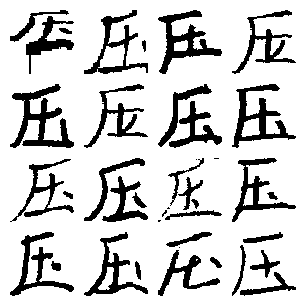 压压压压
压压压压
压压压压
压压压压